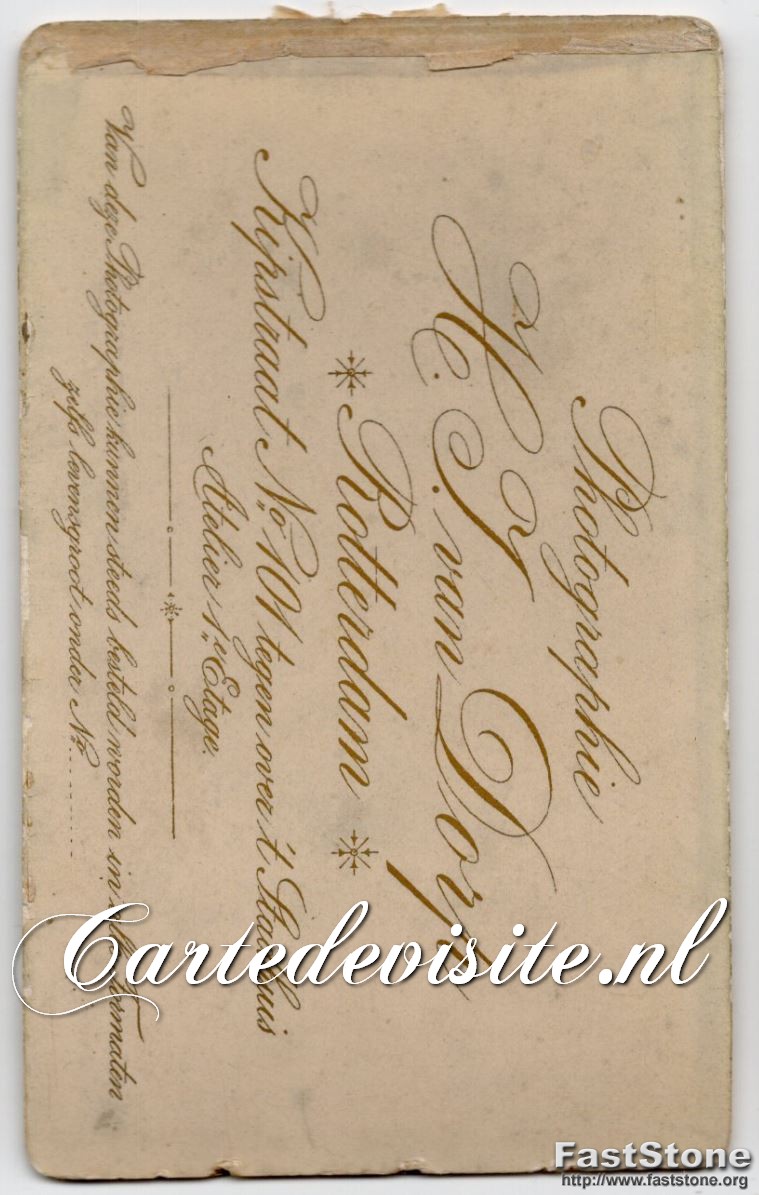 Photographie
H. J. van Dorp
Rotterdam
Kipstraat No. 101 tegen over 't Stadhuis
Atelier 1e Etage.
Van deze Photographie kunnen steeds besteld worden in alle formaten
zelfs levensgroot onder No.........
Cartedevisite.nl
FastStone
http://www.faststone.org